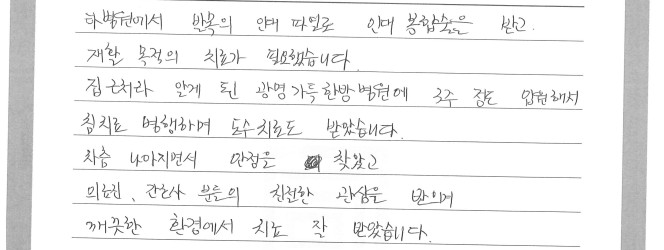 하병원에서 발목의 인대 파열로 인대 봉합술을 받고.
재활 목적의 치료가 필요했습니다.
집 근처라 알게 된 광명가득한방병원에 3주 정도 입원해서
침치료 병행하며 도수치료도 받았습니다.
차츰 나아지면서 안정을 찾았고
의료진, 간호사 분들의 친절한 관심을
깨끗한 환경에서 치료 잘 받았습니다.